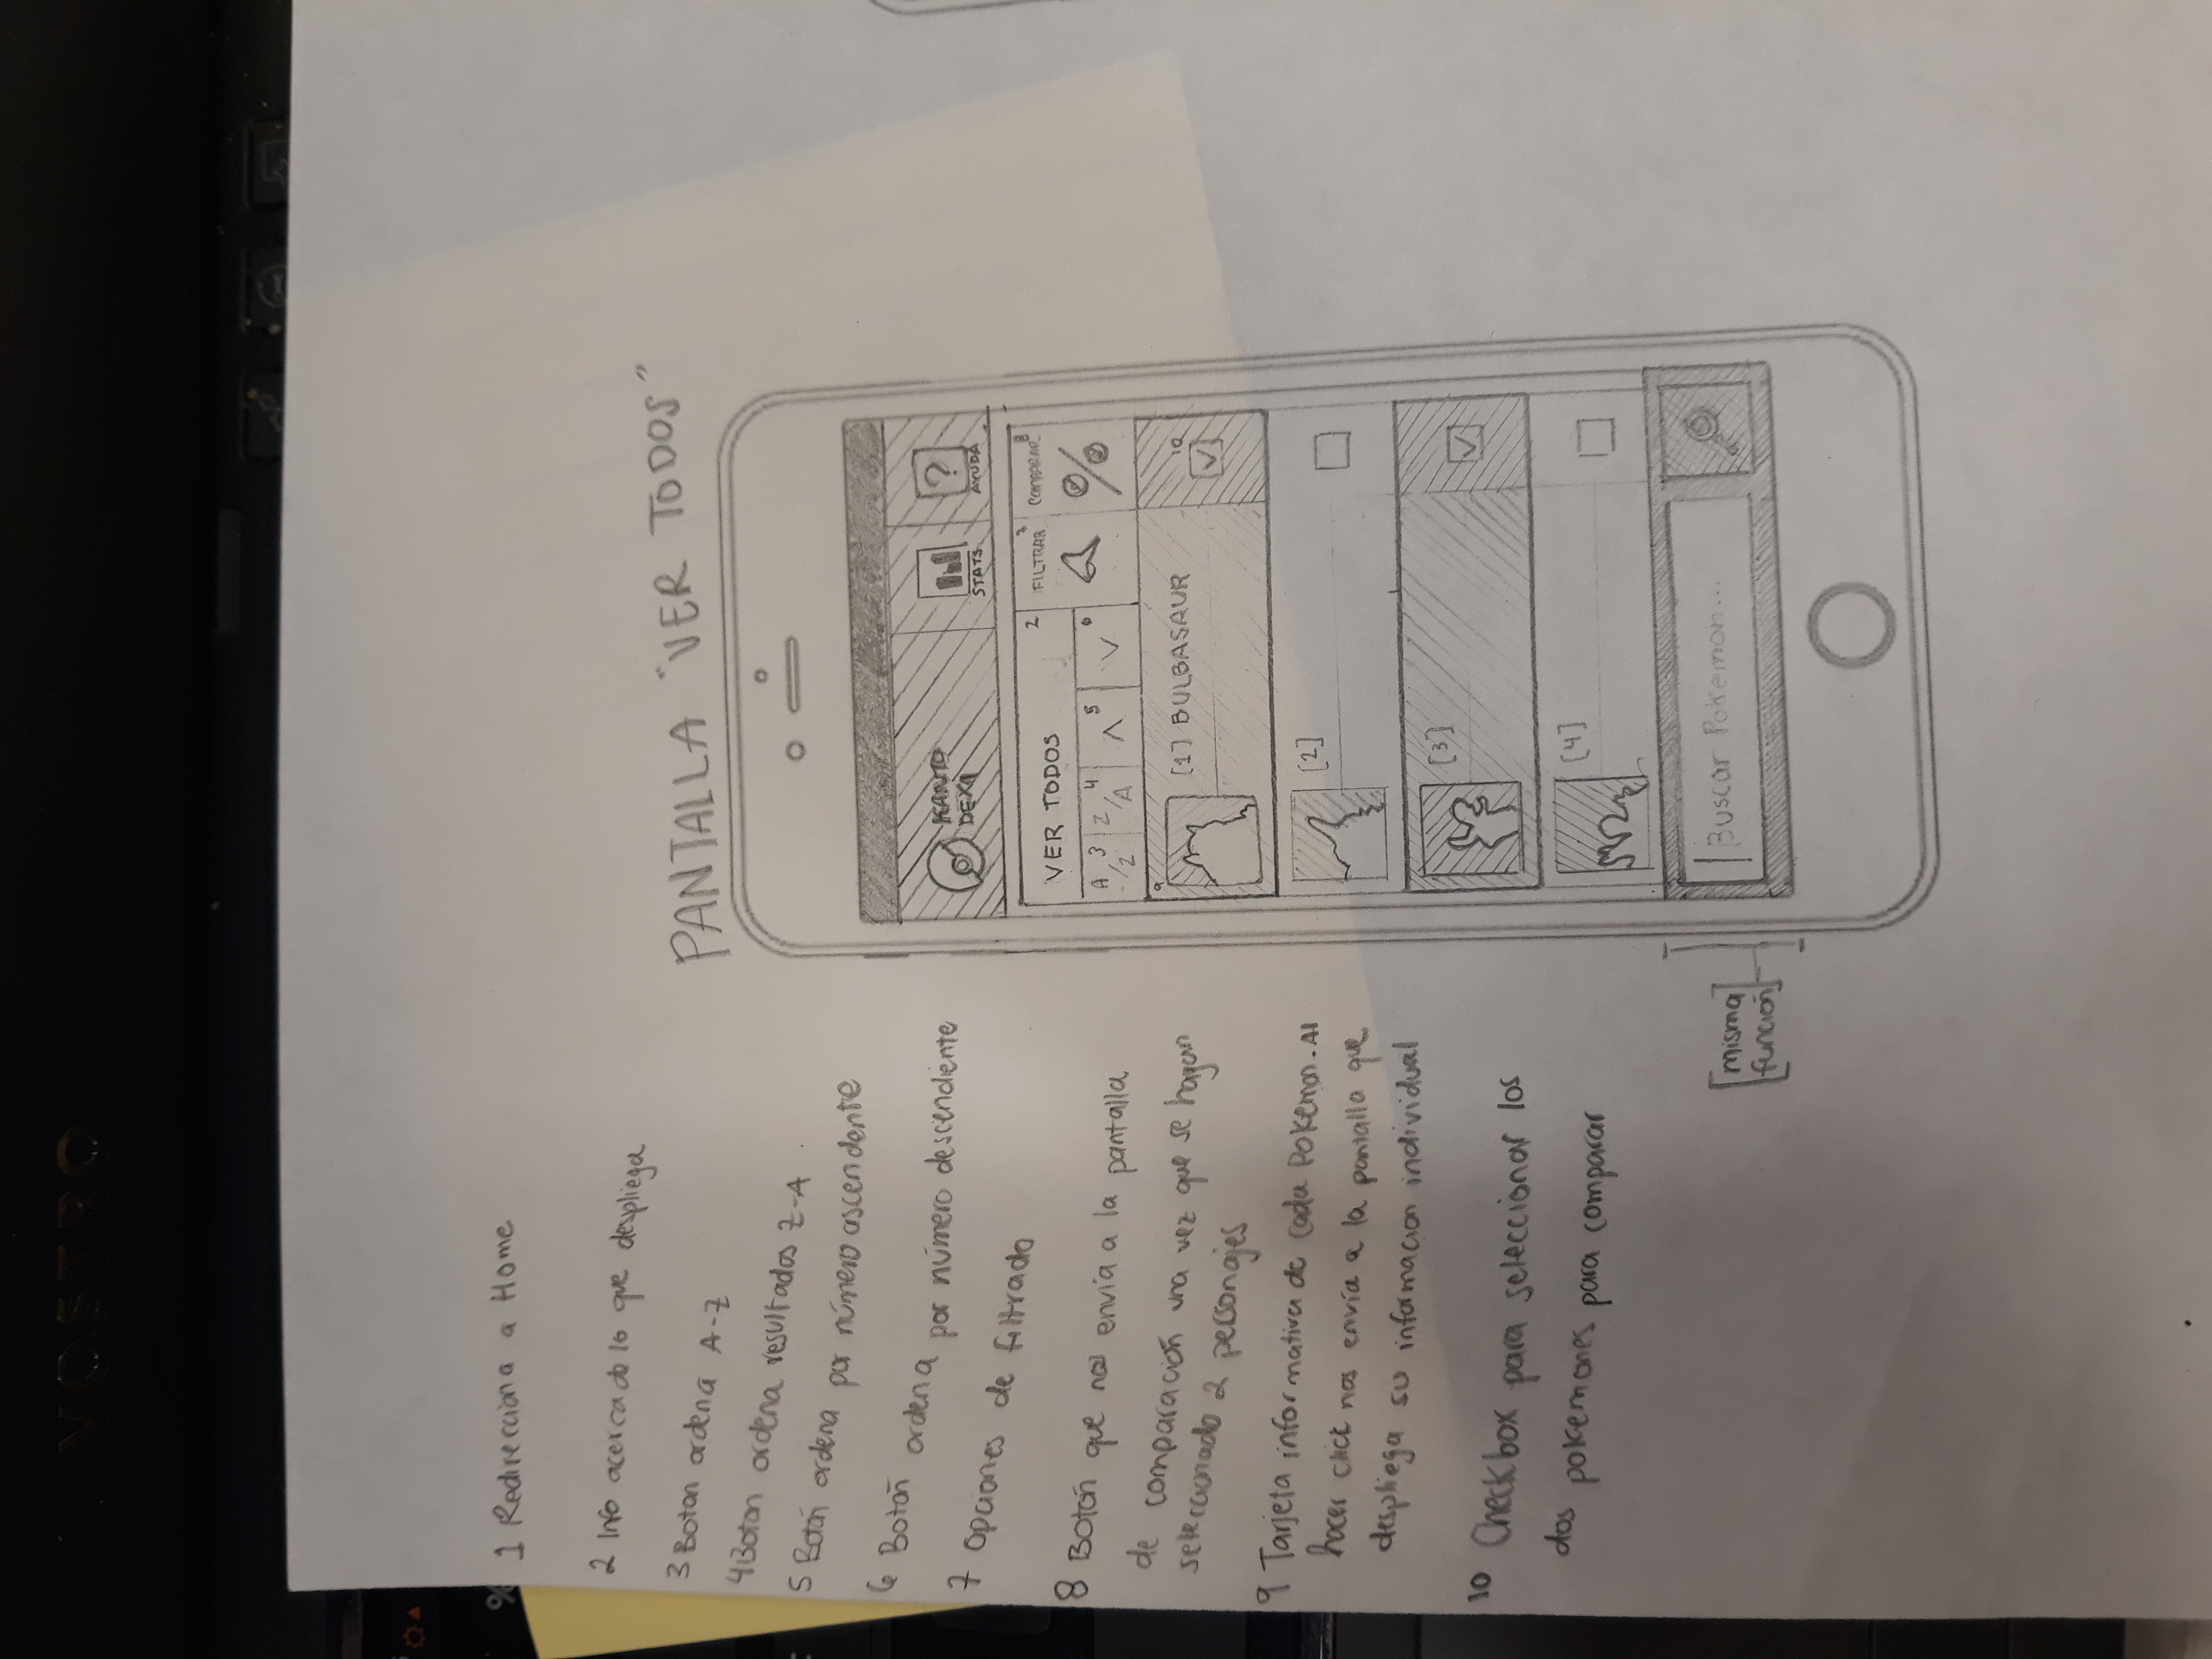 VOSTRO
%
1 Redirecciona a Home
2 Info acerca do lo que despliega
3 Boton ordena A-Z
4 Boton ordena resultados Z-A
5 Botón ordena por número ascendente
6 Botón ordena por número descendiente
7 Opciones de filtrado
8 Botón que nos envía a la pantalla
de comparación una vez que se hagan
seleccionado 2 personajes
9 Tarjeta informativa de cada Pokemon. Al
hacer click nos envía a la pantalla que
despliega su informacion individual
10 Checkbox para seleccionar los
dos pokemones para comparar
[misma
función]
PANTALLA "VER TODOS"
KANTO
DEX 1
STATS
?
AYUDA
VER TODOS 2
FILTRAR 7
COMPARAR 8
A/Z 3
Z/A 4
5
6
9
[1] BULBASAUR
10
[2]
[3]
[4]
Buscar Pokemon...